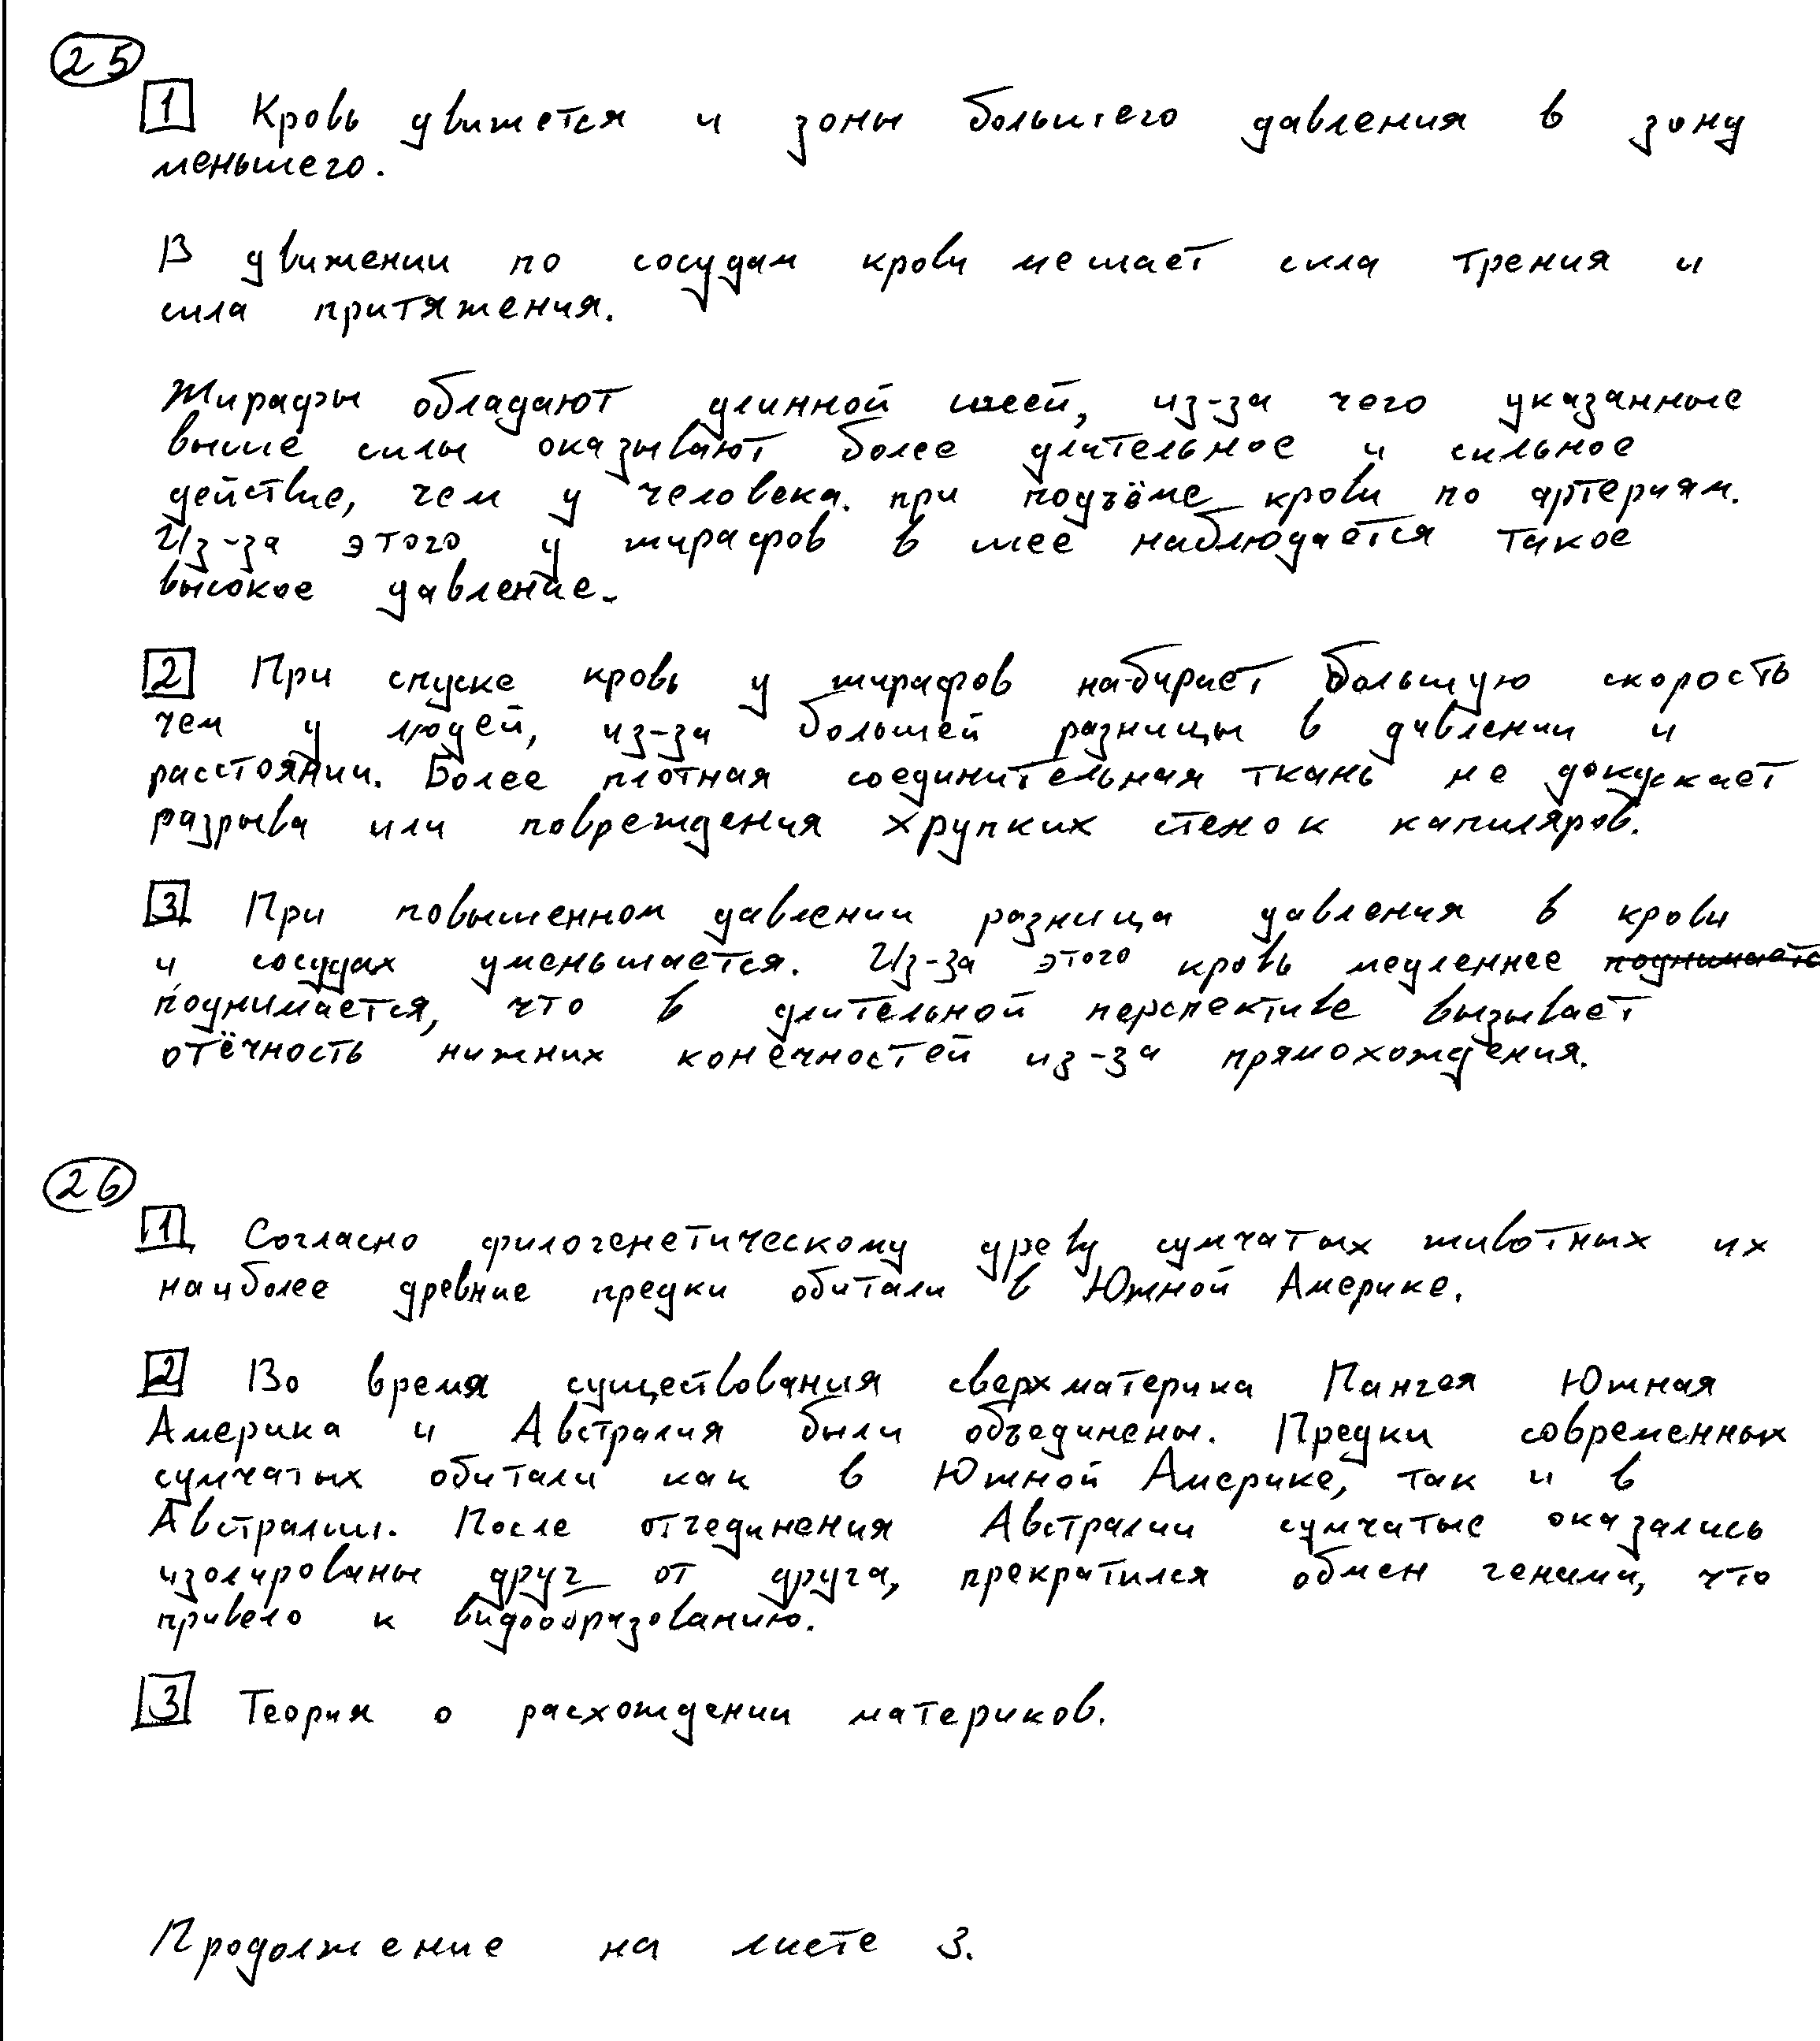 25
1 Кровь движется и зоны большего давления в зону
меньшего.
В движении по сосудам крови мешает сила трения и
сила притяжения.
Жирафы обладают длинной шеей, из-за чего указанные
выше силы оказывают более длительное и сильное
действие, чем у человека. при подъёме крови по артериям.
Из-за этого у жирафов в шее наблюдается такое
высокое давление.
2 При спуске кровь у жирафов набирает большую скорость
чем у людей, из-за большей разницы в давлении и
расстоянии. Более плотная соединительная ткань не допускает
разрыва или повреждения хрупких стенок капиляров.
3 При повышенном давлении разница давления в крови
и сосудах уменьшается. Из-за этого кровь медленнее
поднимается, что в длительной перспективе вызывает
отёчность нижних конечностей из-за прямохождения.
26
1 Согласно филогенетическому древу сумчатых животных их
наиболее древние предки обитали в Южной Америке.
2 Во время существования сверхматерика Пангея Южная
Америка и Австралия были объединены. Предки современных
сумчатых обитали как в Южной Америке, так и в
Австралии. После отчединения Австралии сумчатые оказались
изолированы друг от друга, прекратился обмен генами, что
привело к видообразованию.
3 Теория о расхождении материков.
Продолжение на листе 3.